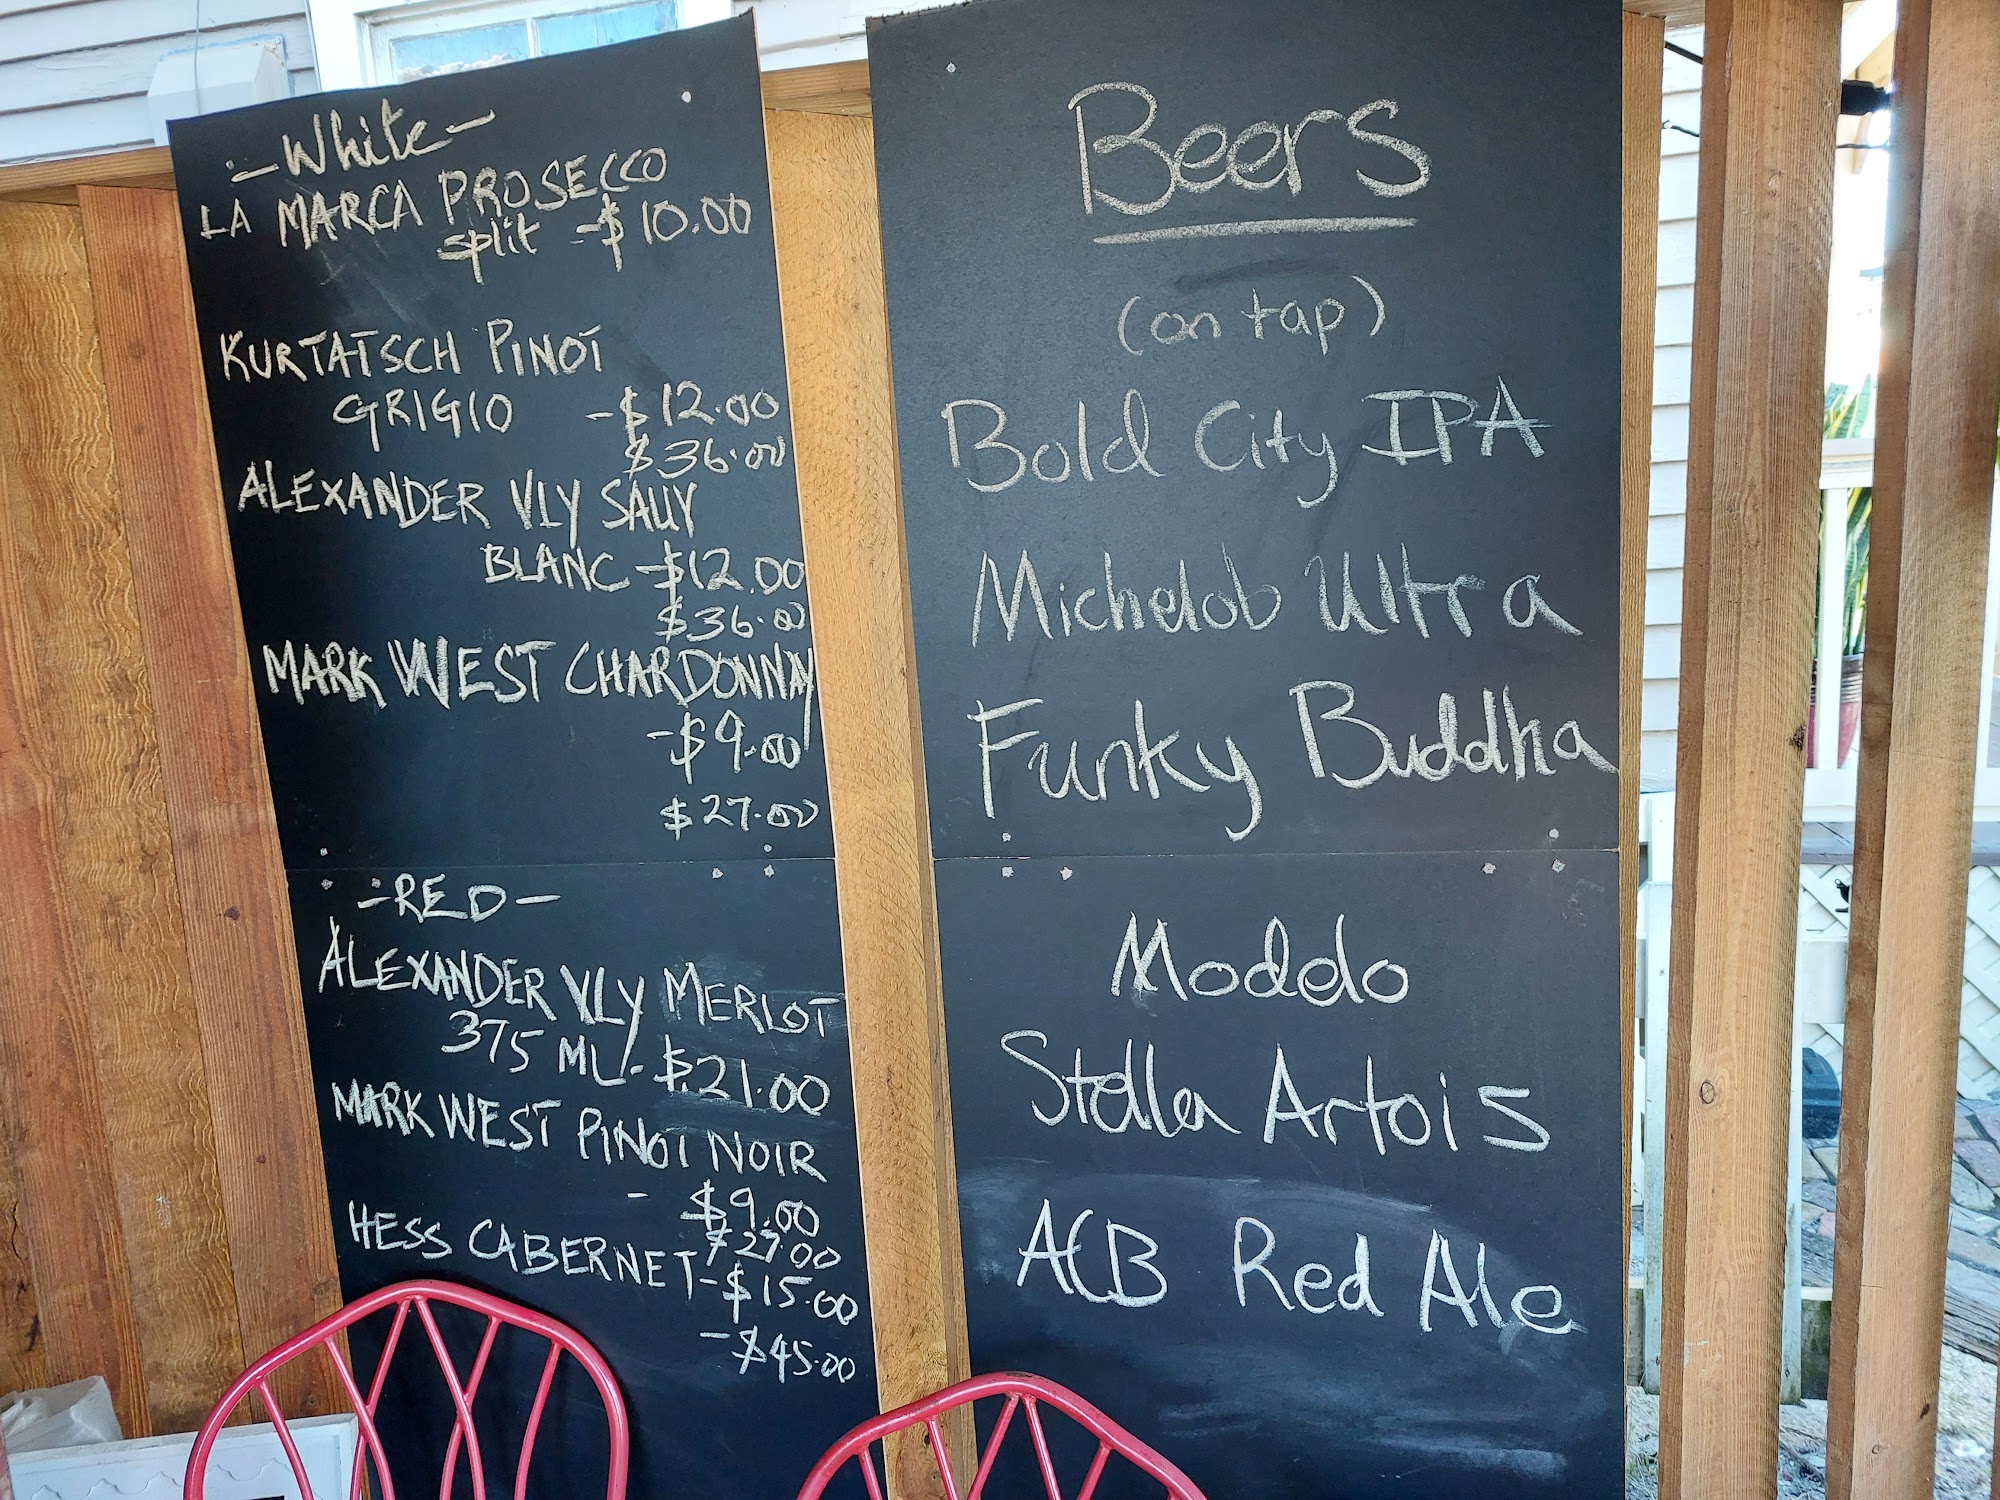 -White-
LA MARCA PROSECCO
split -$10.00
KURTATSCH PINOT
GRIGIO -$12.00
$36.00
ALEXANDER VLY SAUV
BLANC -$12.00
$36.00
MARK WEST CHARDONNAY
-$9.00
$27.00
-RED-
ALEXANDER VLY MERLOT
375 ML - $21.00
MARK WEST PINOT NOIR
- $9.00
$27.00
HESS CABERNET -$15.00
-$45.00
Beers
(on tap)
Bold City IPA
Michelob Ultra
Funky Buddha
Moddo
Stella Artois
ACB Red Ale